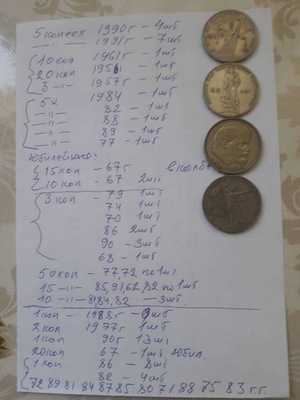 5 копеек 1990г - 4шт
1991г - 7шт
10 коп 1961г - 1шт
20 коп 1951 - 1шт
3 - " - 1957г - 1шт
5к 1984 - 1шт
- " - 82 - 1шт
- " - 88 - 1шт
- " - 89 - 1шт
- " - 77 - 1шт
15 коп - 67г
10 коп - 67 2шт
3 коп - 79 1шт
74 1шт
70 1шт
86 2шт
90 - 3шт
68 - 1шт
50 коп - 77,72 по 1шт
15 - " - 85,91,62,82 по 1шт
10 - " - 81,84,82 - 3шт
1 коп - 1988г -
2 коп 1977г 1шт
1 коп 90г 13шт
20 коп 67 - 1шт юбил
1 коп - 86 - 8шт
82 - 4шт
72 89 81 84 87 85 80 71 88 75 83 г.г.